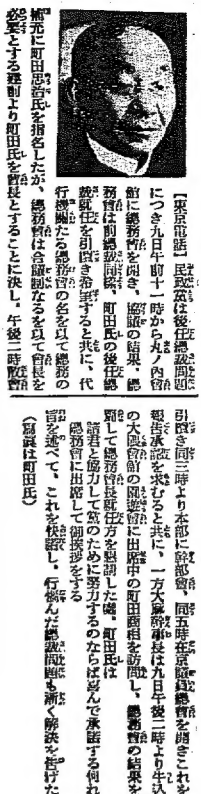 【東京電話】民政黨は後任總裁問題
につき九日午前十一時から丸ノ内會
館に總務會を開き、協議の結果、總
務會は前總裁同樣、町田氏の後任總
裁就任を引續き希望すると共に、代
行機關たる總務會の名を以て總務の
補充に町田忠治氏を指名したが、總務會は合議制なるを以て會長を
必要とする建前より町田氏を會長とすることに決し、午後二時散會
引續き同三時より本部に幹部會、同五時在京議員總會を開きこれを
報告承認を求むると共に、一方大麻幹事長は九日午後二時より牛込
の大隈會館の園遊會に出席中の町田商相を訪問し、總務會の結果を
齎して總務會長就任方を懇請した處、町田氏は
諸君と協力して黨のために努力するのならば喜んで承諾する何れ
總務會に出席して御挨拶をする
旨を述べて、これを快諾し、行惱んだ總裁問題も漸く解決を告げた
(寫眞は町田氏)